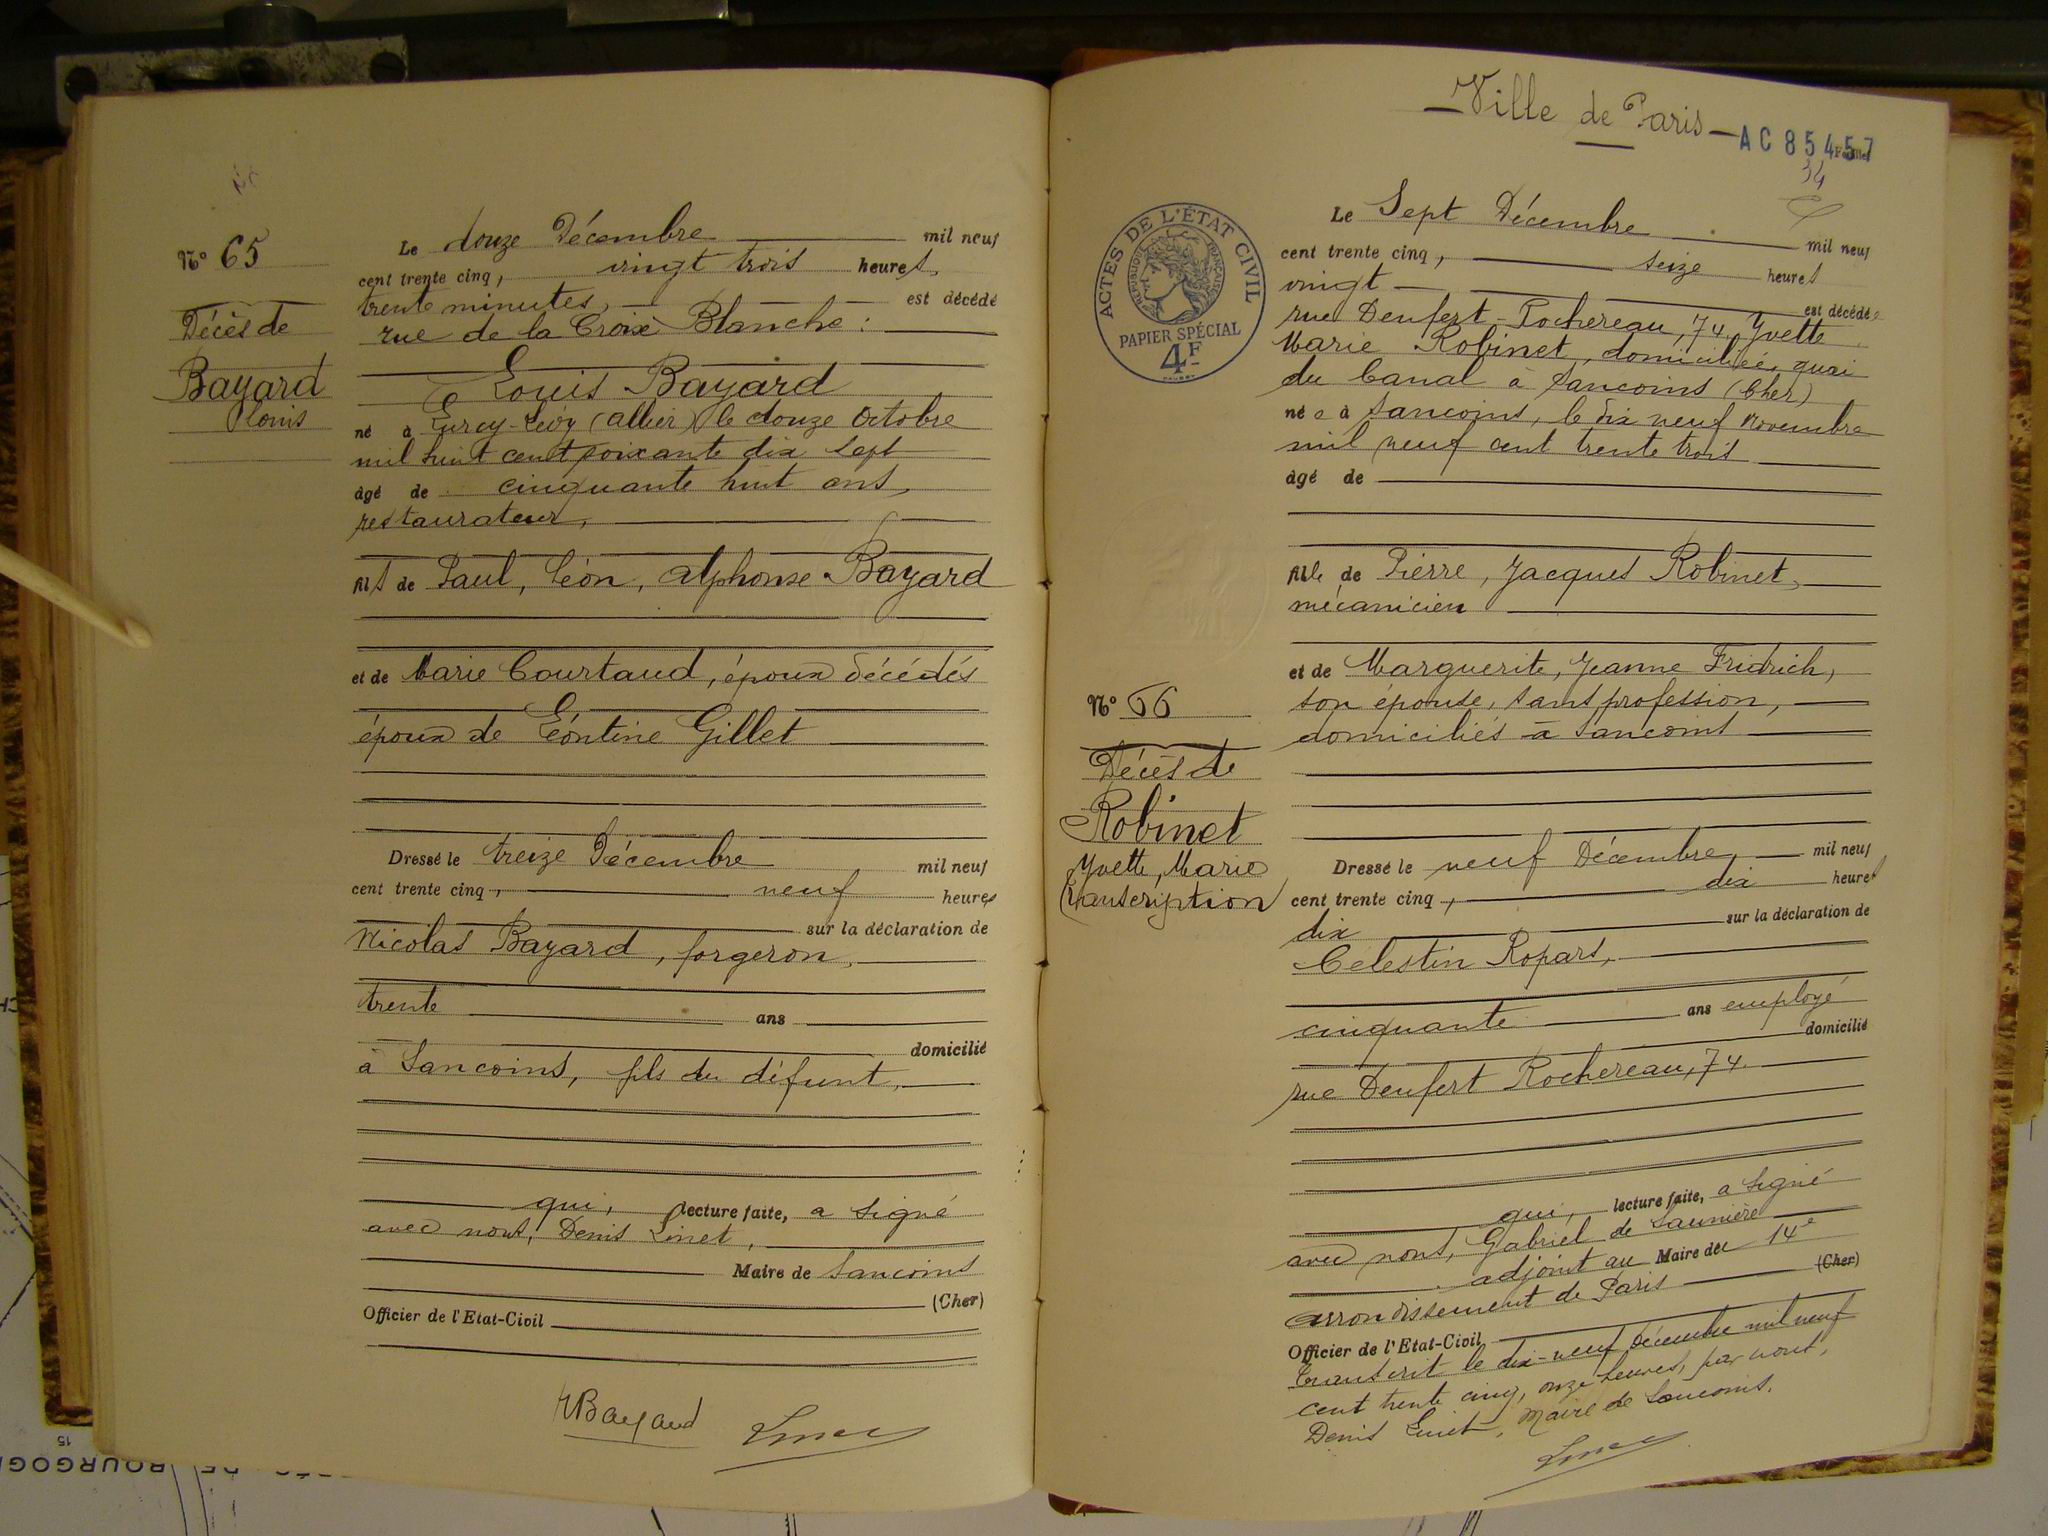 Nº 65
Décès de
Bayard
Louis
Le douze Décembre mil neuf
cent trente cinq, vingt trois heures,
trente minutes, est décédé
rue de la Croix Blanche :
Louis Bayard
né à Lurcy-Lévy (allier) le douze Octobre
mil huit cent soixante dix sept
âgé de cinquante huit ans,
restaurateur,
fils de Paul, Léon, alphonse Bayard
et de Marie Courtaud, époux décédés
époux de Léontine Gillet
Dressé le treize Décembre mil neuf
cent trente cinq, neuf heures
sur la déclaration de
Nicolas Bayard, forgeron,
trente ans
domicilié
à Sancoins, fils du défunt,
qui, lecture faite, a signé
avec nous, Denis Linet,
Maire de Sancoins
(Cher)
Officier de l'Etat-Civil
NBayard
Ville de Paris
AC 85457
Feuillet
34
ACTES DE L'ÉTAT CIVIL
RÉPUBLIQUE FRANÇAISE
PAPIER SPÉCIAL
4F
Nº 66
Décès de
Robinet
Yvette, Marie
(transcription
Le Sept Décembre mil neuf
cent trente cinq, seize heures
vingt est décédée
rue Denfert-Rochereau, 74, Yvette
Marie Robinet, domiciliée, quai
du Canal à Sancoins (Cher)
née à Sancoins, le dix neuf Novembre
mil neuf cent trente trois
âgé de
fille de Pierre, Jacques Robinet,
mécanicien
et de Marguerite, Jeanne Fridrich,
son épouse, sans profession,
domiciliés à Sancoins
Dressé le neuf Décembre, mil neuf
cent trente cinq, dix heures
dix sur la déclaration de
Célestin Ropars,
cinquante ans employé
domicilié
rue Denfert Rochereau, 74.
qui, lecture faite, a signé
avec nous, Gabriel de Launière
adjoint au Maire du 14e
(Cher)
arrondissement de Paris
Officier de l'Etat-Civil
Transcrit le dix-neuf Décembre mil neuf
cent trente cinq, onze heures, par nous,
Denis Linet, Maire de Sancoins.